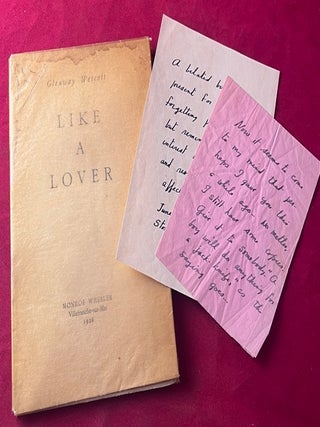 Glenway Wescott
LIKE
A
LOVER
MONROE WHEELER
Villefranche-sur-Mer
1926
A belated b
present for
forgetting,
but remem
interest
and re
affec
June
St
Now it seems to come
to my mind that per-
haps I gave you this
a while ago; no matter,
I still have some copies.
Give it to somebody. "A
boy will do anything for
a jack-knife," as the
saying goes.